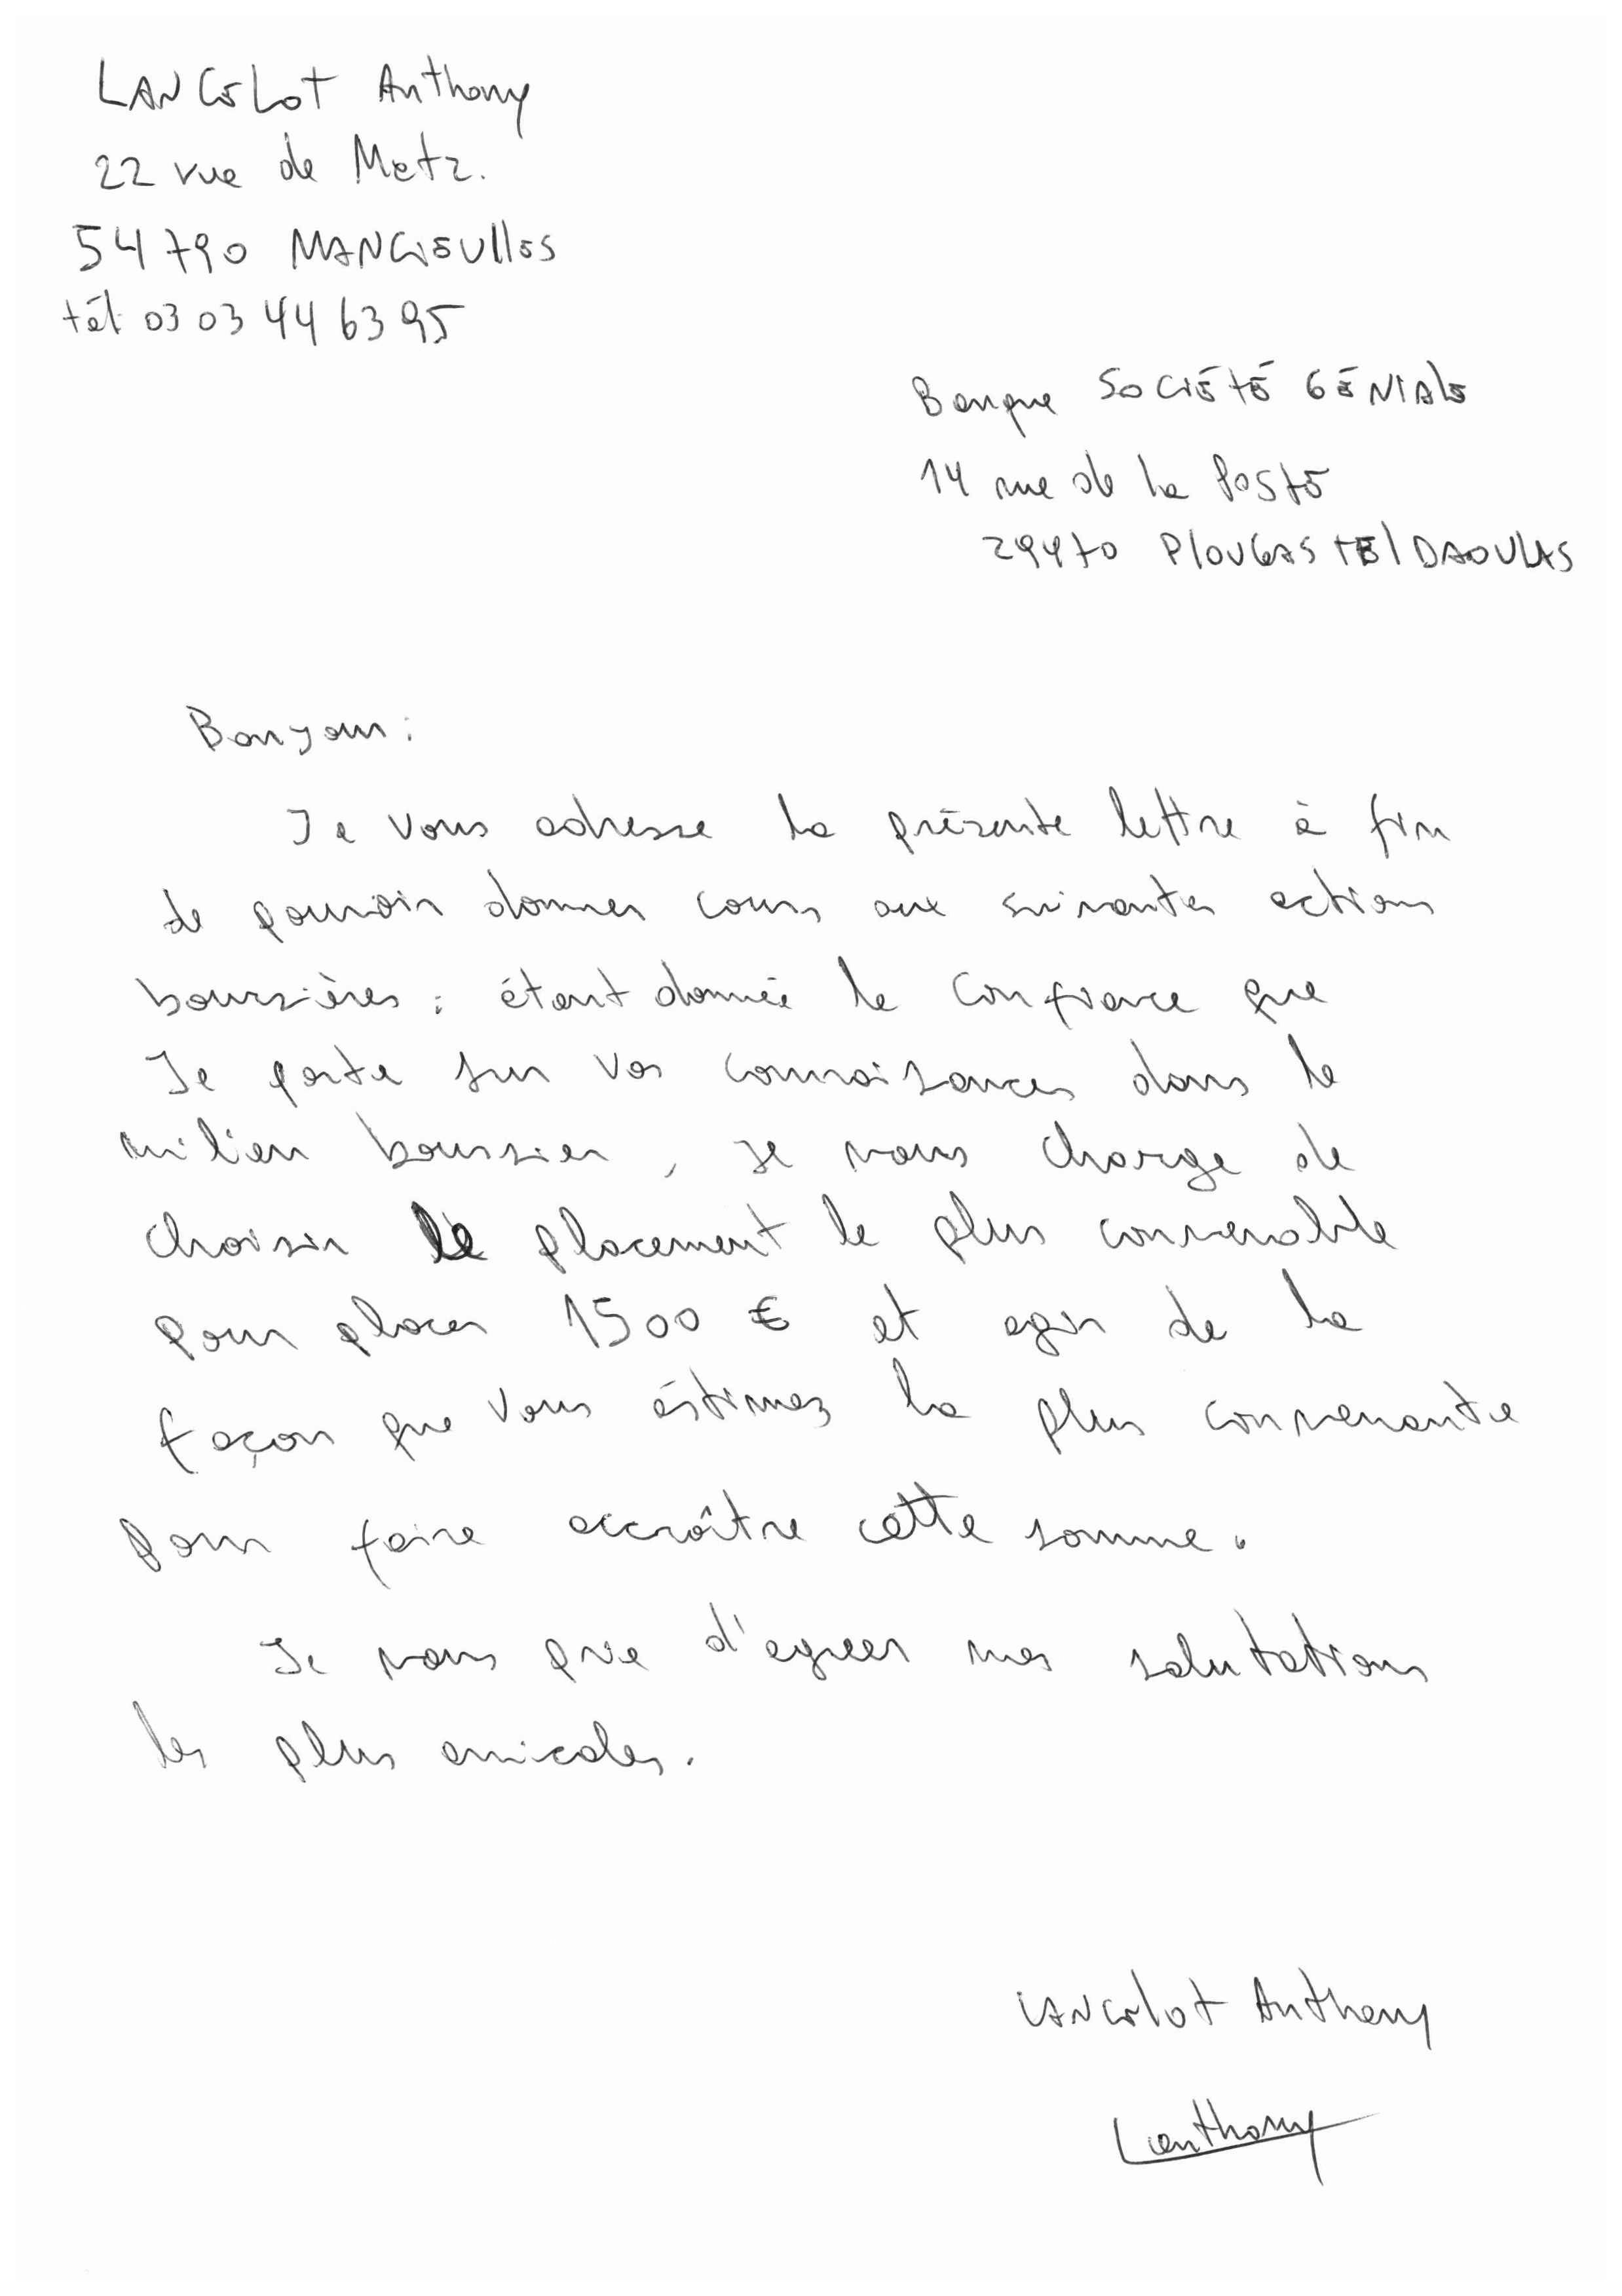 LANCELOT Anthony
22 rue de Metz.
54790 MANCIEULLES
tél 03 03 44 63 95
Banque SOCIÉTÉ GÉNIALE
14 rue de la POSTE
29470 PLOUGASTEL DAOULAS
Bonjour :
Je vous adresse la présente lettre à fin
de pouvoir donner cours aux suivantes actions
boursières : étant donnée la confiance que
Je porte sur vos connaissances dans le
milieu boursier, je vous charge de
choisir le placement le plus convenable
pour placer 1500 € et agir de la
façon que vous éstimez la plus convenante
pour faire accroître cette somme.
Je vous prie d'agreer mes salutations
les plus amicales.
LANCELOT Anthony
Lanthony